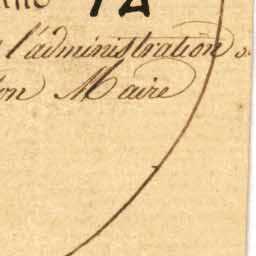 7A
l'administration
Maire